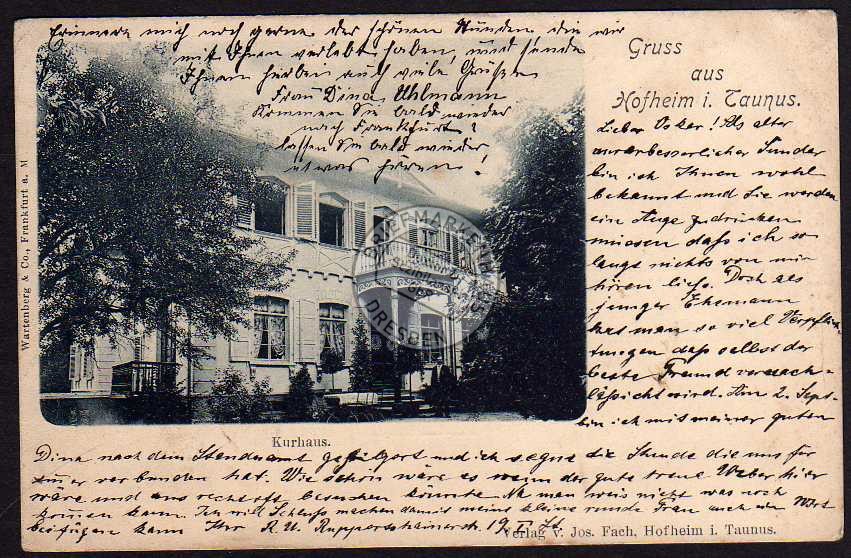 Erinnere mich noch gerne der schönen Stunden, die wir
mit Ihnen verlebt haben, und sende
Ihnen hierbei auch viele Grüsse
Frau Dina Uhlmann
Kommen Sie bald wieder
nach Frankfurt?
lassen Sie bald wieder
etwas hören!
Gruss
aus
Hofheim i. Taunus.
Lieber Oskar! Als alter
unverbesserlicher Sünder
bin ich Ihnen wohl
bekannt und Sie werden
ein Auge zudrücken
müssen dass ich so
lange nichts von mir
hören liess. Doch als
junger Ehemann
hat man so viel Verpflich-
tungen dass selbst der
beste Freund vernach-
lässigt wird. Am 2. Sept.
bin ich mit meiner guten
Dina nach dem Standesamt und ich segne die Stunde die uns für
immer verbunden hat. Wie schön wäre es wenn der gute treue hier
wäre und uns recht oft besuchen könnte. Na man weis nicht was noch
kommen kann. Ich will Schluss machen damit meine kleine Frau auch ein Wort
beifügen kann Ihr R. U.
Kurhaus.
Wartenberg & Co., Frankfurt a. M
Verlag v. Jos. Fach, Hofheim i. Taunus.
BRIEFMARKEN
DRESDEN